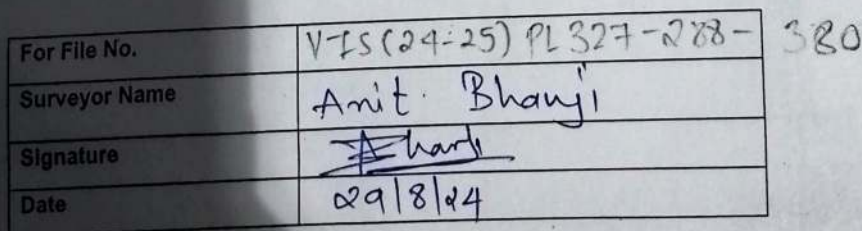 For File No. VIS(24-25) PL327-288-380
Surveyor Name Anit. Bhanji
Signature
Date 29/8/24